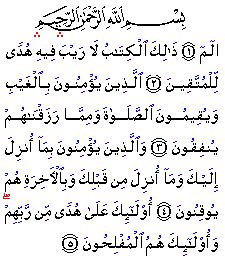 بِسْمِ ٱللَّهِ ٱلرَّحْمَٰنِ ٱلرَّحِيمِ
الٓمٓ ۝١ ذَٰلِكَ ٱلْكِتَٰبُ لَا رَيْبَ فِيهِ هُدًى
لِّلْمُتَّقِينَ ۝٢ ٱلَّذِينَ يُؤْمِنُونَ بِٱلْغَيْبِ
وَيُقِيمُونَ ٱلصَّلَوٰةَ وَمِمَّا رَزَقْنَٰهُمْ
يُنفِقُونَ ۝٣ وَٱلَّذِينَ يُؤْمِنُونَ بِمَآ أُنزِلَ
إِلَيْكَ وَمَآ أُنزِلَ مِن قَبْلِكَ وَبِٱلْءَاخِرَةِ هُمْ
يُوقِنُونَ ۝٤ أُو۟لَٰٓئِكَ عَلَىٰ هُدًى مِّن رَّبِّهِمْ ۖ
وَأُو۟لَٰٓئِكَ هُمُ ٱلْمُفْلِحُونَ ۝٥